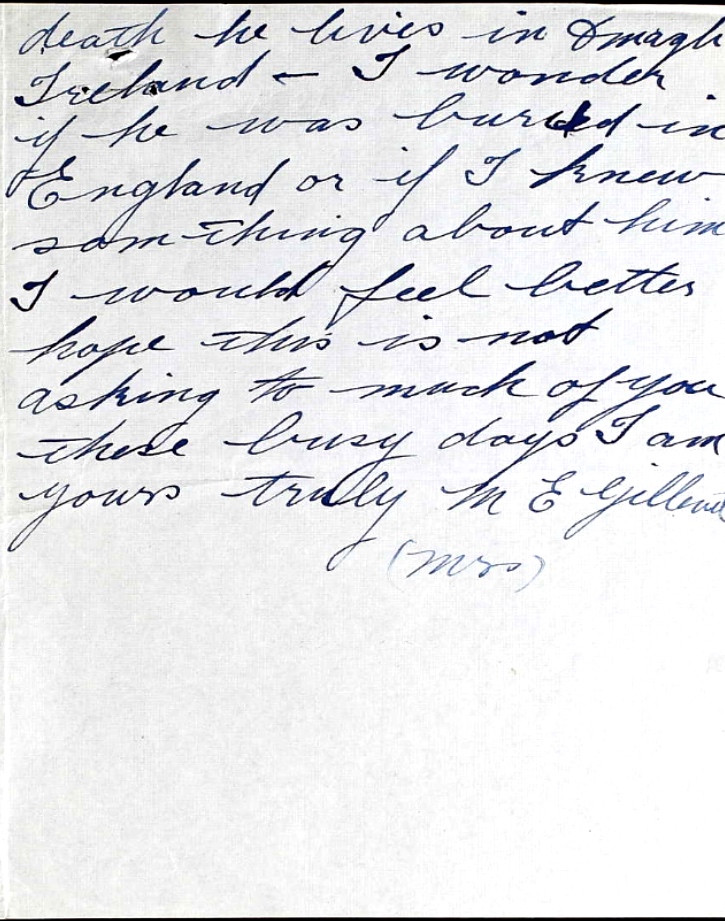 death he lives in Omagh
Ireland - I wonder
if he was buried in
England or if I knew
something about him
I would feel better
hope this is not
asking to much of you
these busy days I am
yours truly M E
(Mrs)